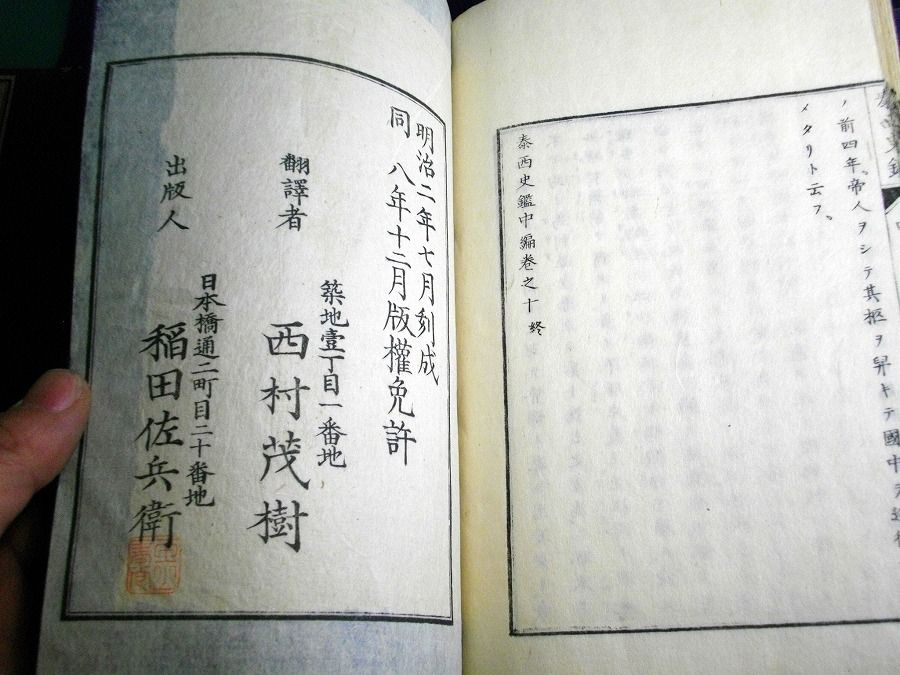 ノ前四年帝人ヲシテ其柩ヲ舁キテ國中
メタリト云フ
泰西史鑑中編卷之十終
明治二年七月刻成
同八年十二月版權免許
翻譯者
築地壹丁目一番地
西村茂樹
出版人
日本橋通二町目二十番地
稲田佐兵衛